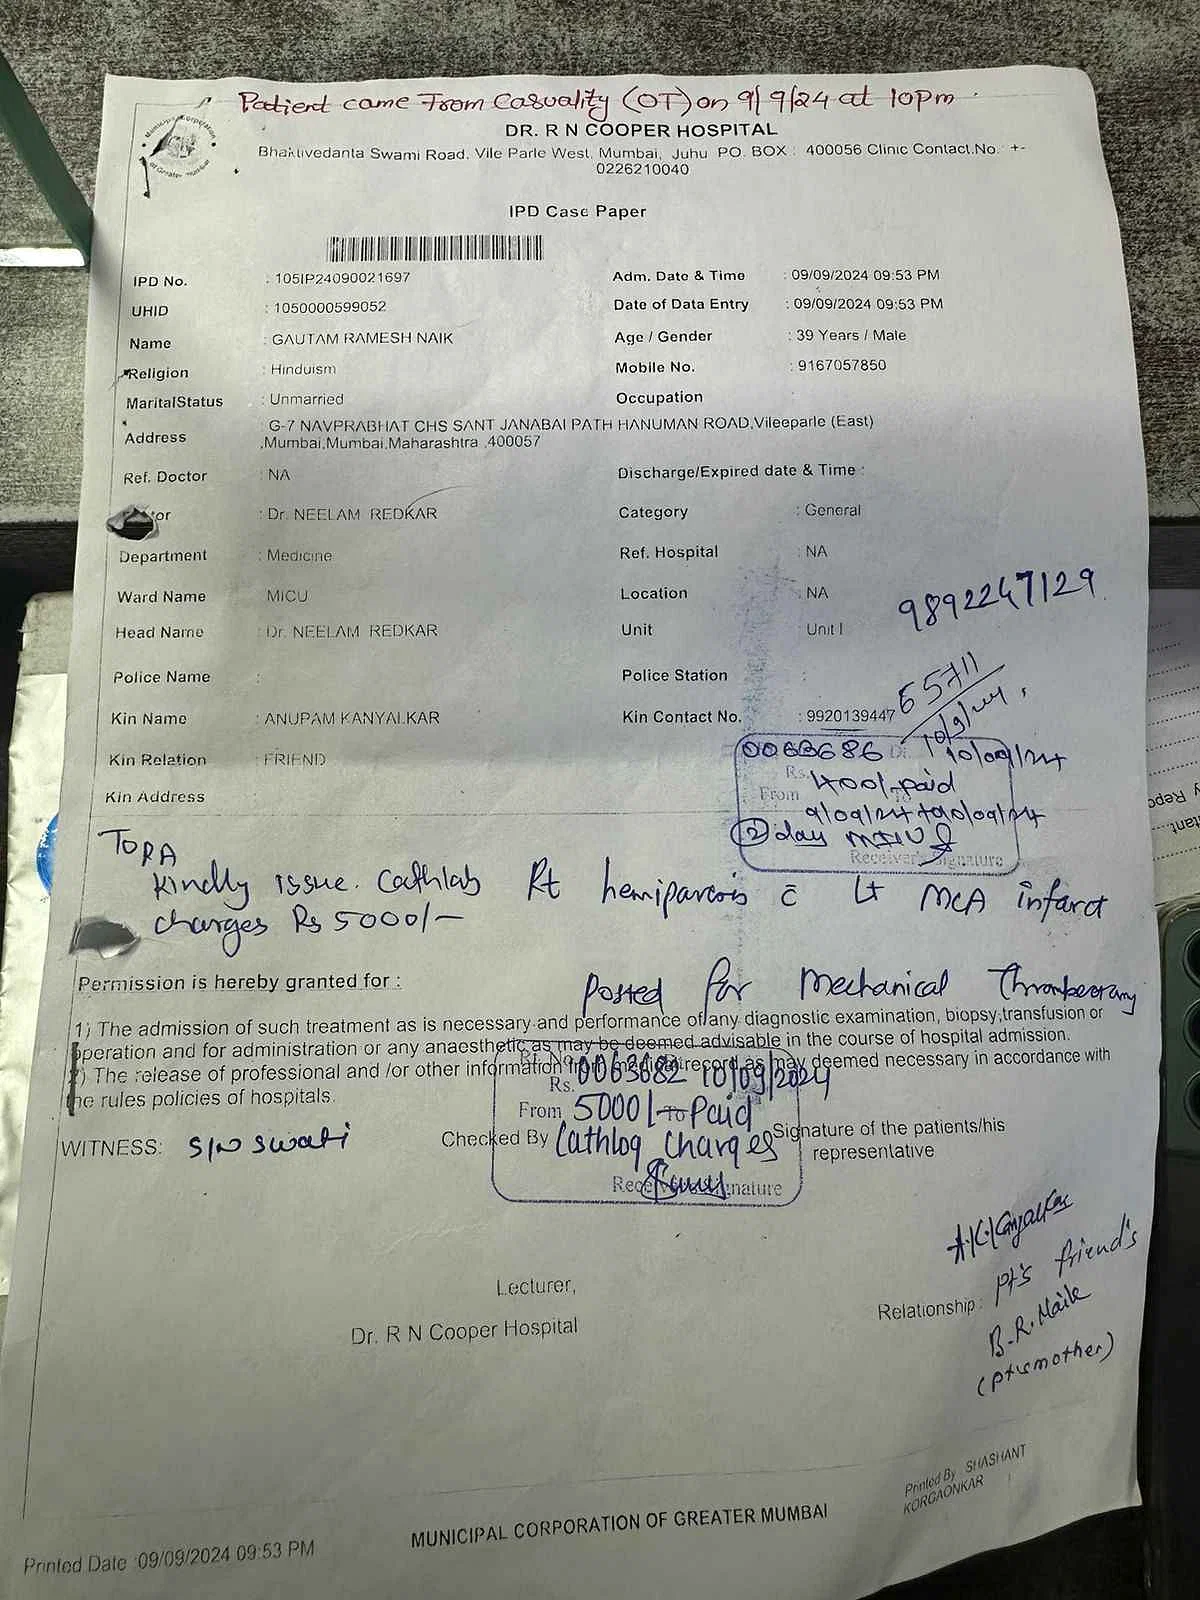 Patient came From Casuality (OT) on 9/9/24 at 10pm
Municipal Corporation of Greater Mumbai
DR. R N COOPER HOSPITAL
Bhaktivedanta Swami Road, Vile Parle West, Mumbai, Juhu PO. BOX : 400056 Clinic Contact.No. : +-
0226210040
IPD Case Paper
IPD No. : 105IP24090021697 Adm. Date & Time : 09/09/2024 09:53 PM
UHID : 1050000599052 Date of Data Entry : 09/09/2024 09:53 PM
Name : GAUTAM RAMESH NAIK Age / Gender : 39 Years / Male
Religion : Hinduism Mobile No. : 9167057850
MaritalStatus : Unmarried Occupation
Address : G-7 NAVPRABHAT CHS SANT JANABAI PATH HANUMAN ROAD,Vileeparle (East)
,Mumbai,Mumbai,Maharashtra ,400057
Ref. Doctor : NA Discharge/Expired date & Time :
tor : Dr. NEELAM REDKAR Category : General
Department : Medicine Ref. Hospital : NA
Ward Name MICU Location : NA
9892247129
Head Name : Dr. NEELAM REDKAR Unit : Unit I
Police Name : Police Station
65711
10/9/24
Kin Name : ANUPAM KANYALKAR Kin Contact No. : 9920139447
Kin Relation : FRIEND
Kin Address :
0063686 Dt. 10/09/24
Rs. 400/-paid
From 9/09/24 to 10/09/24
2 day MICU
Receiver's Signature
To RA
Kindly issue. Cathlab Rt hemiparesis c̄ Lt MCA infarct
charges Rs 5000/-
Permission is hereby granted for :
Posted for Mechanical Thrombectomy
1) The admission of such treatment as is necessary and performance of any diagnostic examination, biopsy,transfusion or
operation and for administration or any anaesthetic as may be deemed advisable in the course of hospital admission.
2) The release of professional and /or other information from medical record as may deemed necessary in accordance with
the rules policies of hospitals.
Rt. No. 0063682 10/09/2024
Rs.
From 5000/- To Paid
Cathlog Charges
Receiver's Signature
WITNESS: S/N Swati Checked By Signature of the patients/his
representative
A.K.Kanyalkar
Lecturer,
Dr. R N Cooper Hospital
Relationship : Pt's friend's
B.R.Naik
(pt's mother)
Printed By SHASHANT
KORGAONKAR
MUNICIPAL CORPORATION OF GREATER MUMBAI
Printed Date :09/09/2024 09:53 PM